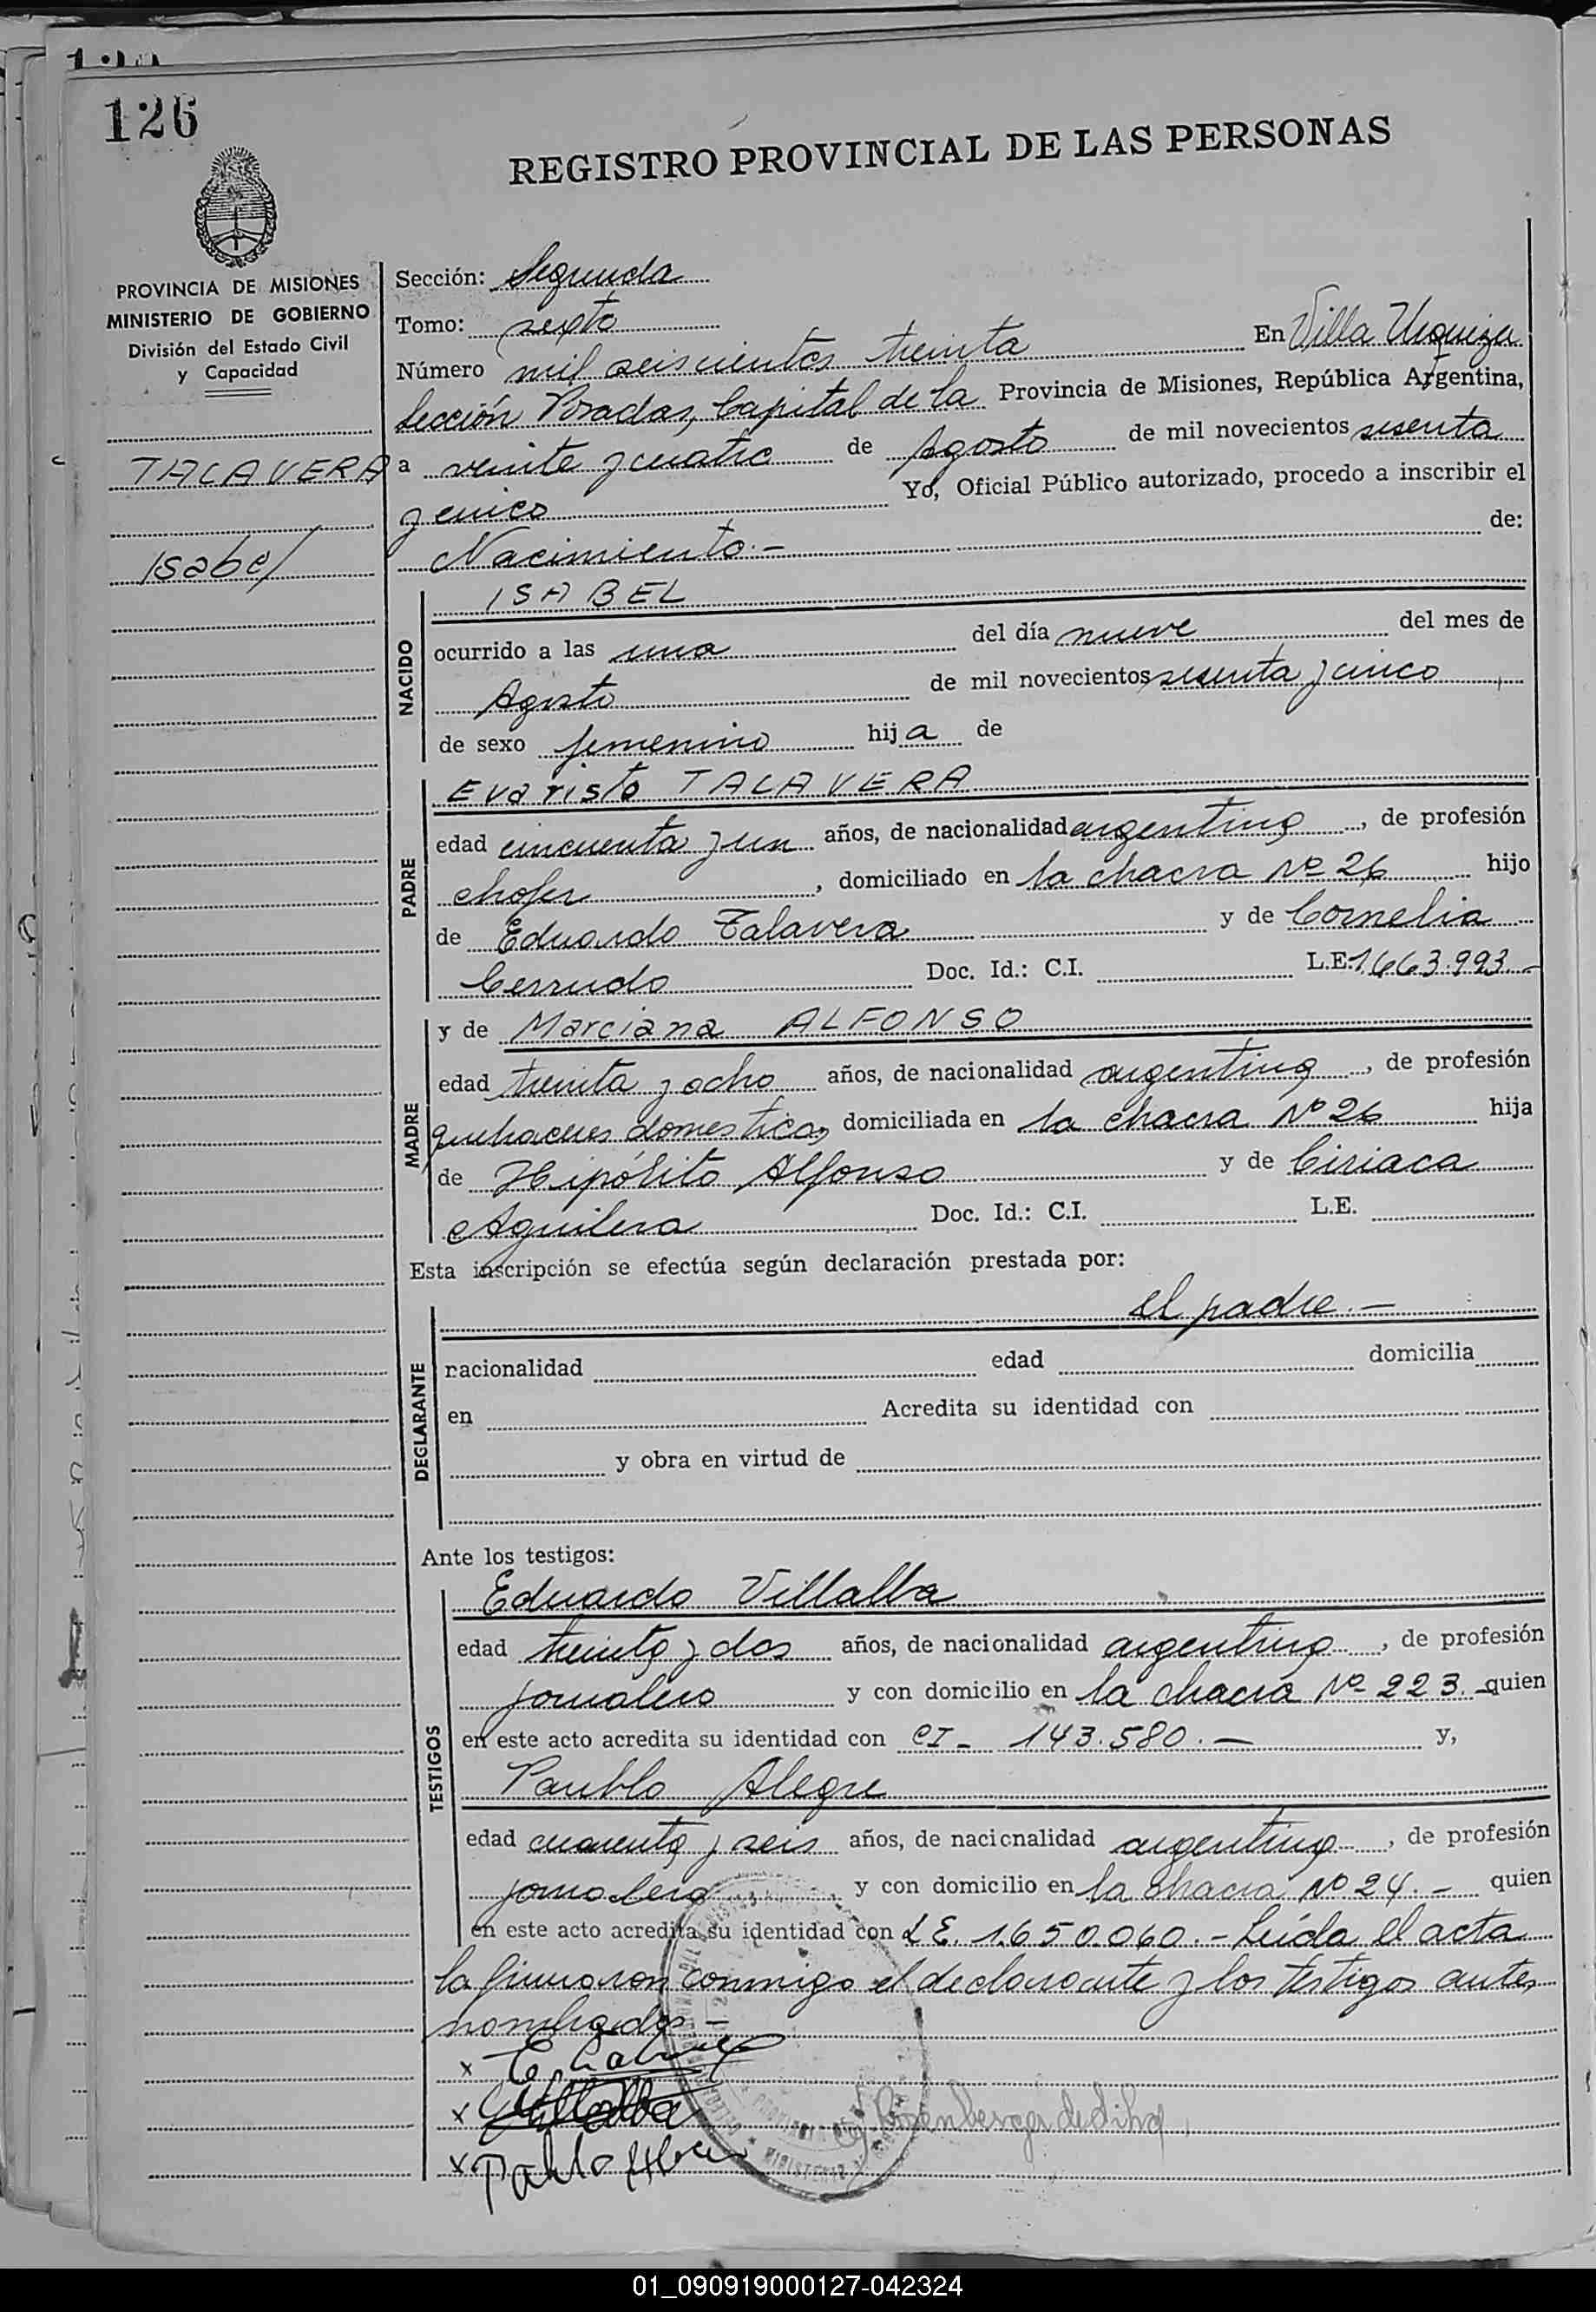 126
REGISTRO PROVINCIAL DE LAS PERSONAS
PROVINCIA DE MISIONES
MINISTERIO DE GOBIERNO
División del Estado Civil
y Capacidad
TALAVERA
Isabel
Sección: Segunda
Tomo: sexto
Número mil seiscientos treinta En Villa Urquiza
Sección Posadas, Capital de la Provincia de Misiones, República Argentina,
a veinte y cuatro de Agosto de mil novecientos sesenta
y cinco Yo, Oficial Público autorizado, procedo a inscribir el
Nacimiento.- de:
NACIDO
ISABEL
ocurrido a las una del día nueve del mes de
Agosto de mil novecientos sesenta y cinco
de sexo femenino hija de
PADRE
Evaristo TALAVERA
edad cincuenta y un años, de nacionalidad argentina, de profesión
chofer, domiciliado en la chacra Nº 26 hijo
de Eduardo Talavera y de Cornelia
Cerrudo Doc. Id.: C.I. L.E. 1.663.993.-
MADRE
y de Marciana ALFONSO
edad treinta y ocho años, de nacionalidad argentina, de profesión
quehaceres domesticos, domiciliada en la chacra Nº 26 hija
de Hipólito Alfonso y de Ciriaca
Aguilera Doc. Id.: C.I. L.E.
Esta inscripción se efectúa según declaración prestada por:
DECLARANTE
el padre.-
nacionalidad edad domicilia
en Acredita su identidad con
y obra en virtud de
Ante los testigos:
TESTIGOS
Eduardo Villalba
edad treinta y dos años, de nacionalidad argentina, de profesión
jornalero y con domicilio en la chacra Nº 223.- quien
en este acto acredita su identidad con CI- 143.580.- y,
Paublo Alegre
edad cuarenta y seis años, de nacionalidad argentina, de profesión
jornalero y con domicilio en la chacra Nº 24.- quien
en este acto acredita su identidad con LE. 1.650.060.- Leída el acta
la firmaron conmigo el declarante y los testigos antes
nombrados-
x
x Villalba
x Pablo
01_090919000127-042324